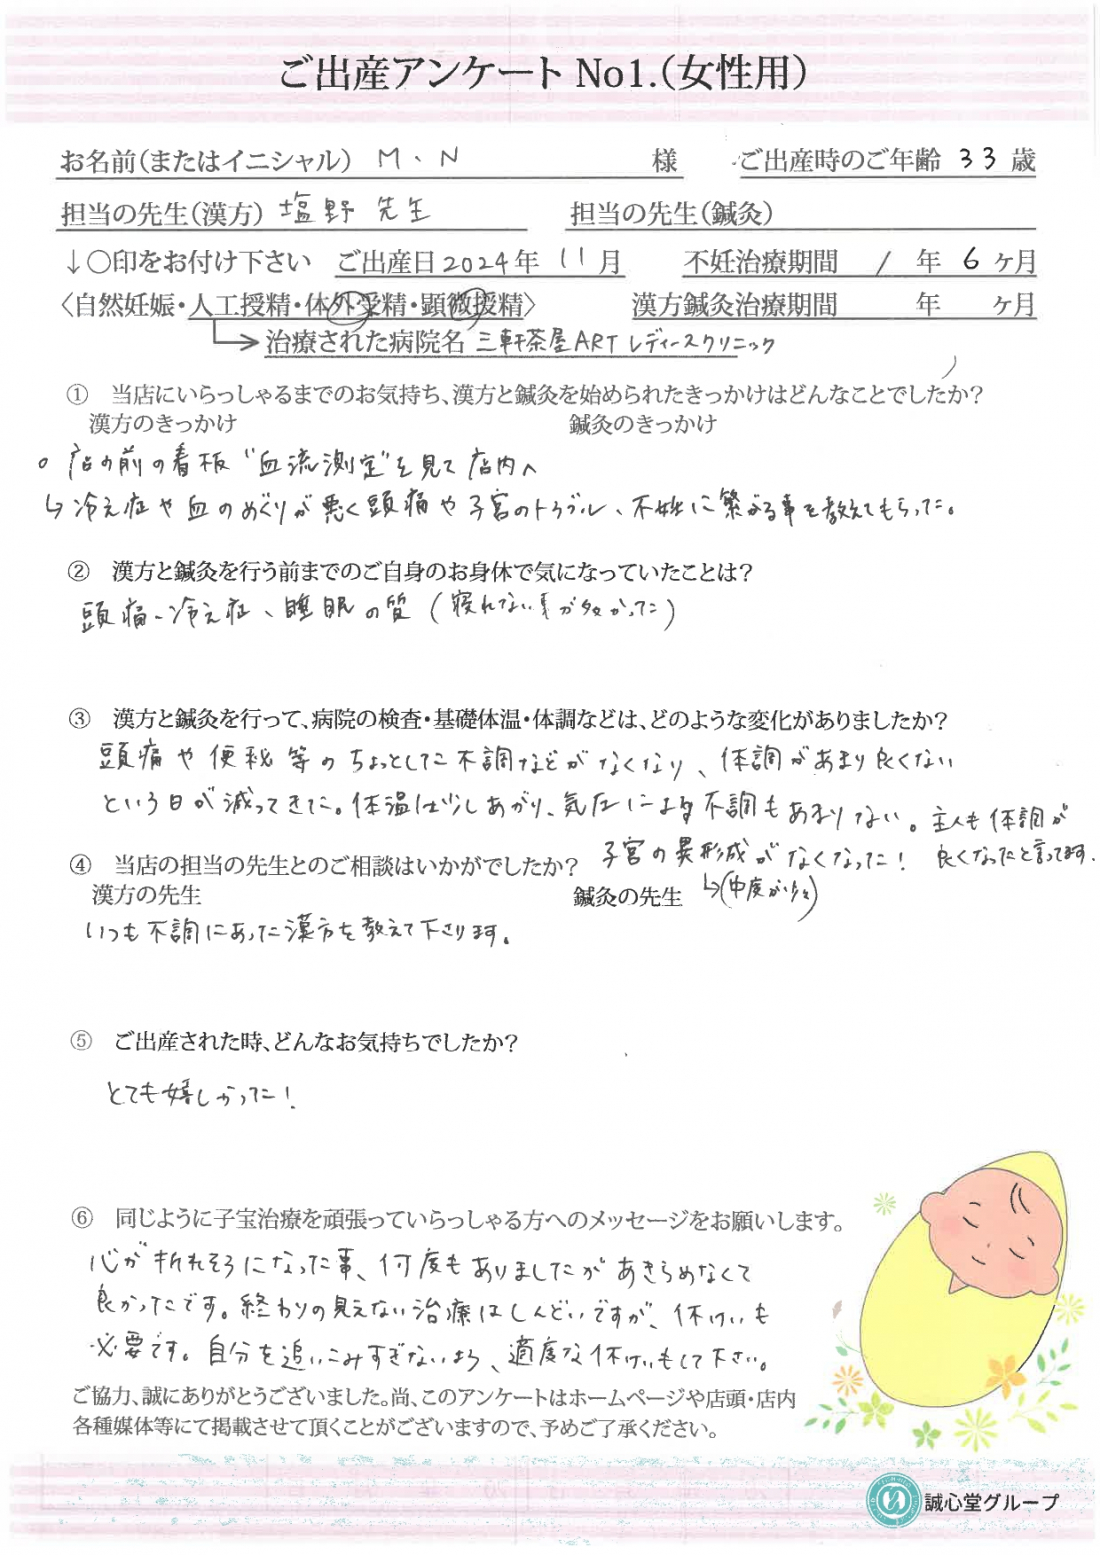 ご出産アンケート No1.(女性用)
お名前(またはイニシャル) M、N 様 ご出産時のご年齢 33 歳
担当の先生(漢方) 塩野 先生 担当の先生(鍼灸)
↓〇印をお付け下さい ご出産日 2024年 11 月 不妊治療期間 / 年 6 ヶ月
〈自然妊娠・人工授精・体外受精・顕微授精〉 漢方鍼灸治療期間 年 ヶ月
→ 治療された病院名 三軒茶屋ARTレディースクリニック
① 当店にいらっしゃるまでのお気持ち、漢方と鍼灸を始められたきっかけはどんなことでしたか?
漢方のきっかけ 鍼灸のきっかけ
○ 店の前の看板 "血流測定"を見て店内へ
↳ 冷え症や血のめぐりが悪く頭痛や子宮のトラブル、不妊に繋がる事を教えてもらった。
② 漢方と鍼灸を行う前までのご自身のお身体で気になっていたことは?
頭痛、冷え症、睡眠の質(寝れない事が多かった)
③ 漢方と鍼灸を行って、病院の検査・基礎体温・体調などは、どのような変化がありましたか?
頭痛や便秘等のちょっとした不調などがなくなり、体調があまり良くない
という日が減ってきた。体温は少しあがり、気圧による不調もあまりない。主人も体調が
良くなったと言ってます。
子宮の異形成がなくなった!
↳(中度が少々)
④ 当店の担当の先生とのご相談はいかがでしたか?
漢方の先生 鍼灸の先生
いつも不調にあった漢方を教えて下さります。
⑤ ご出産された時、どんなお気持ちでしたか?
とても嬉しかった!
⑥ 同じように子宝治療を頑張っていらっしゃる方へのメッセージをお願いします。
心が折れそうになった事、何度もありましたがあきらめなくて
良かったです。終わりの見えない治療はしんどいですが、休けいも
必要です。自分を追いこみすぎないよう、適度な休けいもして下さい。
ご協力、誠にありがとうございました。尚、このアンケートはホームページや店頭・店内
各種媒体等にて掲載させて頂くことがございますので、予めご了承ください。
誠心堂グループ